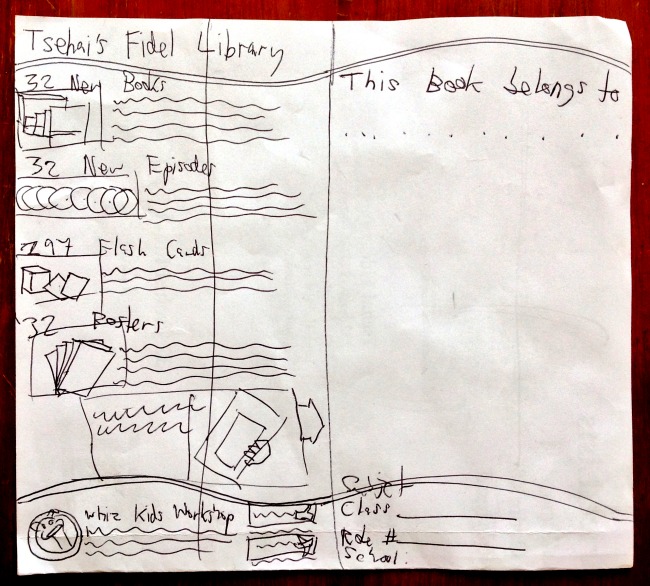 Tsehai's Fidel Library
32 New Books
32 New Episodes
297 Flash Cards
32 Posters
whiz Kids Workshop
This Book belongs to
Class
Role #
School: